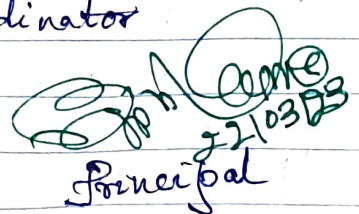 dinator
22/03/23
Principal